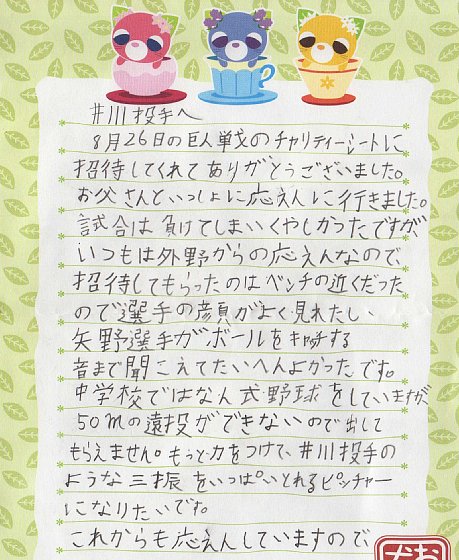 井川投手へ
8月26日の巨人戦のチャリティーシートに
招待してくれてありがとうございました。
お父さんといっしょに応えんに行きました。
試合は負けてしまいくやしかったですが
いつもは外野からの応えんなので、
招待してもらったのはベンチの近くだった
ので選手の顔がよく見れたし、
矢野選手がボールをキャッチする
音まで聞こえてたいへんよかったです。
中学校ではなん式野球をしていますが
50mの遠投ができないので出して
もらえません。もっと力をつけて、井川投手の
ような三振をいっぱいとれるピッチャー
になりたいです。
これからも応えんしていますので